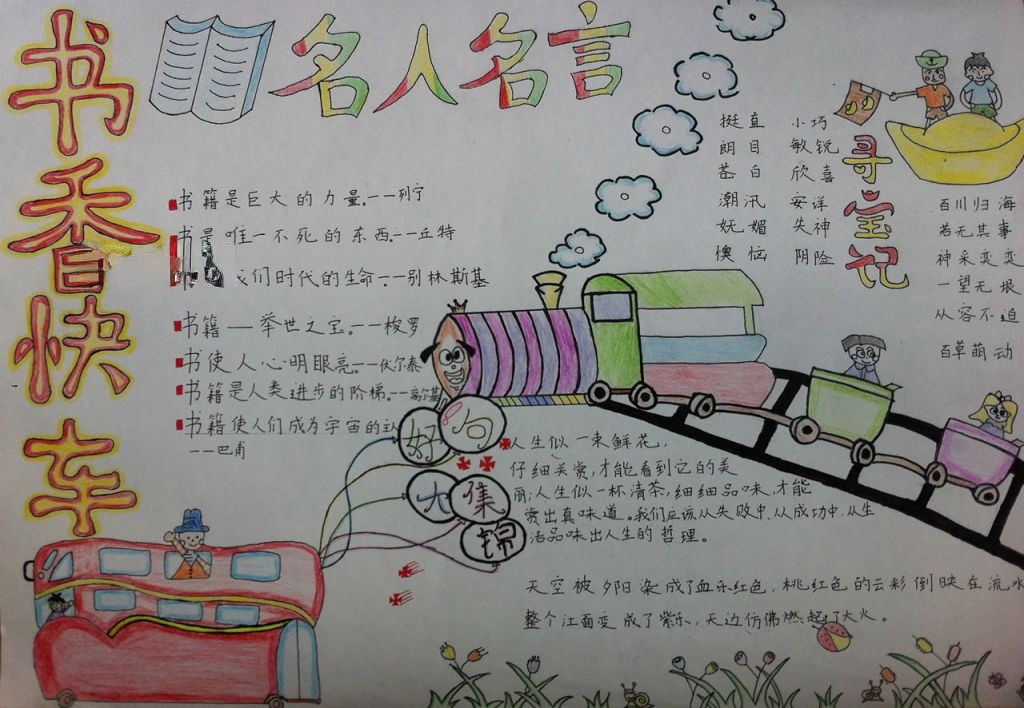 书香快车
名人名言
书籍是巨大的力量。——列宁
书是唯一不死的东西。——丘特
们时代的生命——别林斯基
书籍——举世之宝。——梭罗
书使人心明眼亮。——伏尔泰
书籍是人类进步的阶梯。——高尔基
书籍使人们成为宇宙的
——巴甫
寻宝记
挺直 小巧
朗目 敏锐
苍白 欣喜
潮汛 安详
妩媚 失神
懊恼 阴险
百川归海
若无其事
神采奕奕
一望无垠
从容不迫
百草萌动
好句
大集
锦
人生似一束鲜花，
仔细关赏，才能看到它的美
丽；人生似一杯清茶，细细品味，才能
赏出真味道。我们应该从失败中、从成功中、从生
活品味出人生的哲理。
天空被夕阳染成了血乐红色，桃红色的云彩倒映在流水
整个江面变成了紫乐，天边仿佛燃起了大火。